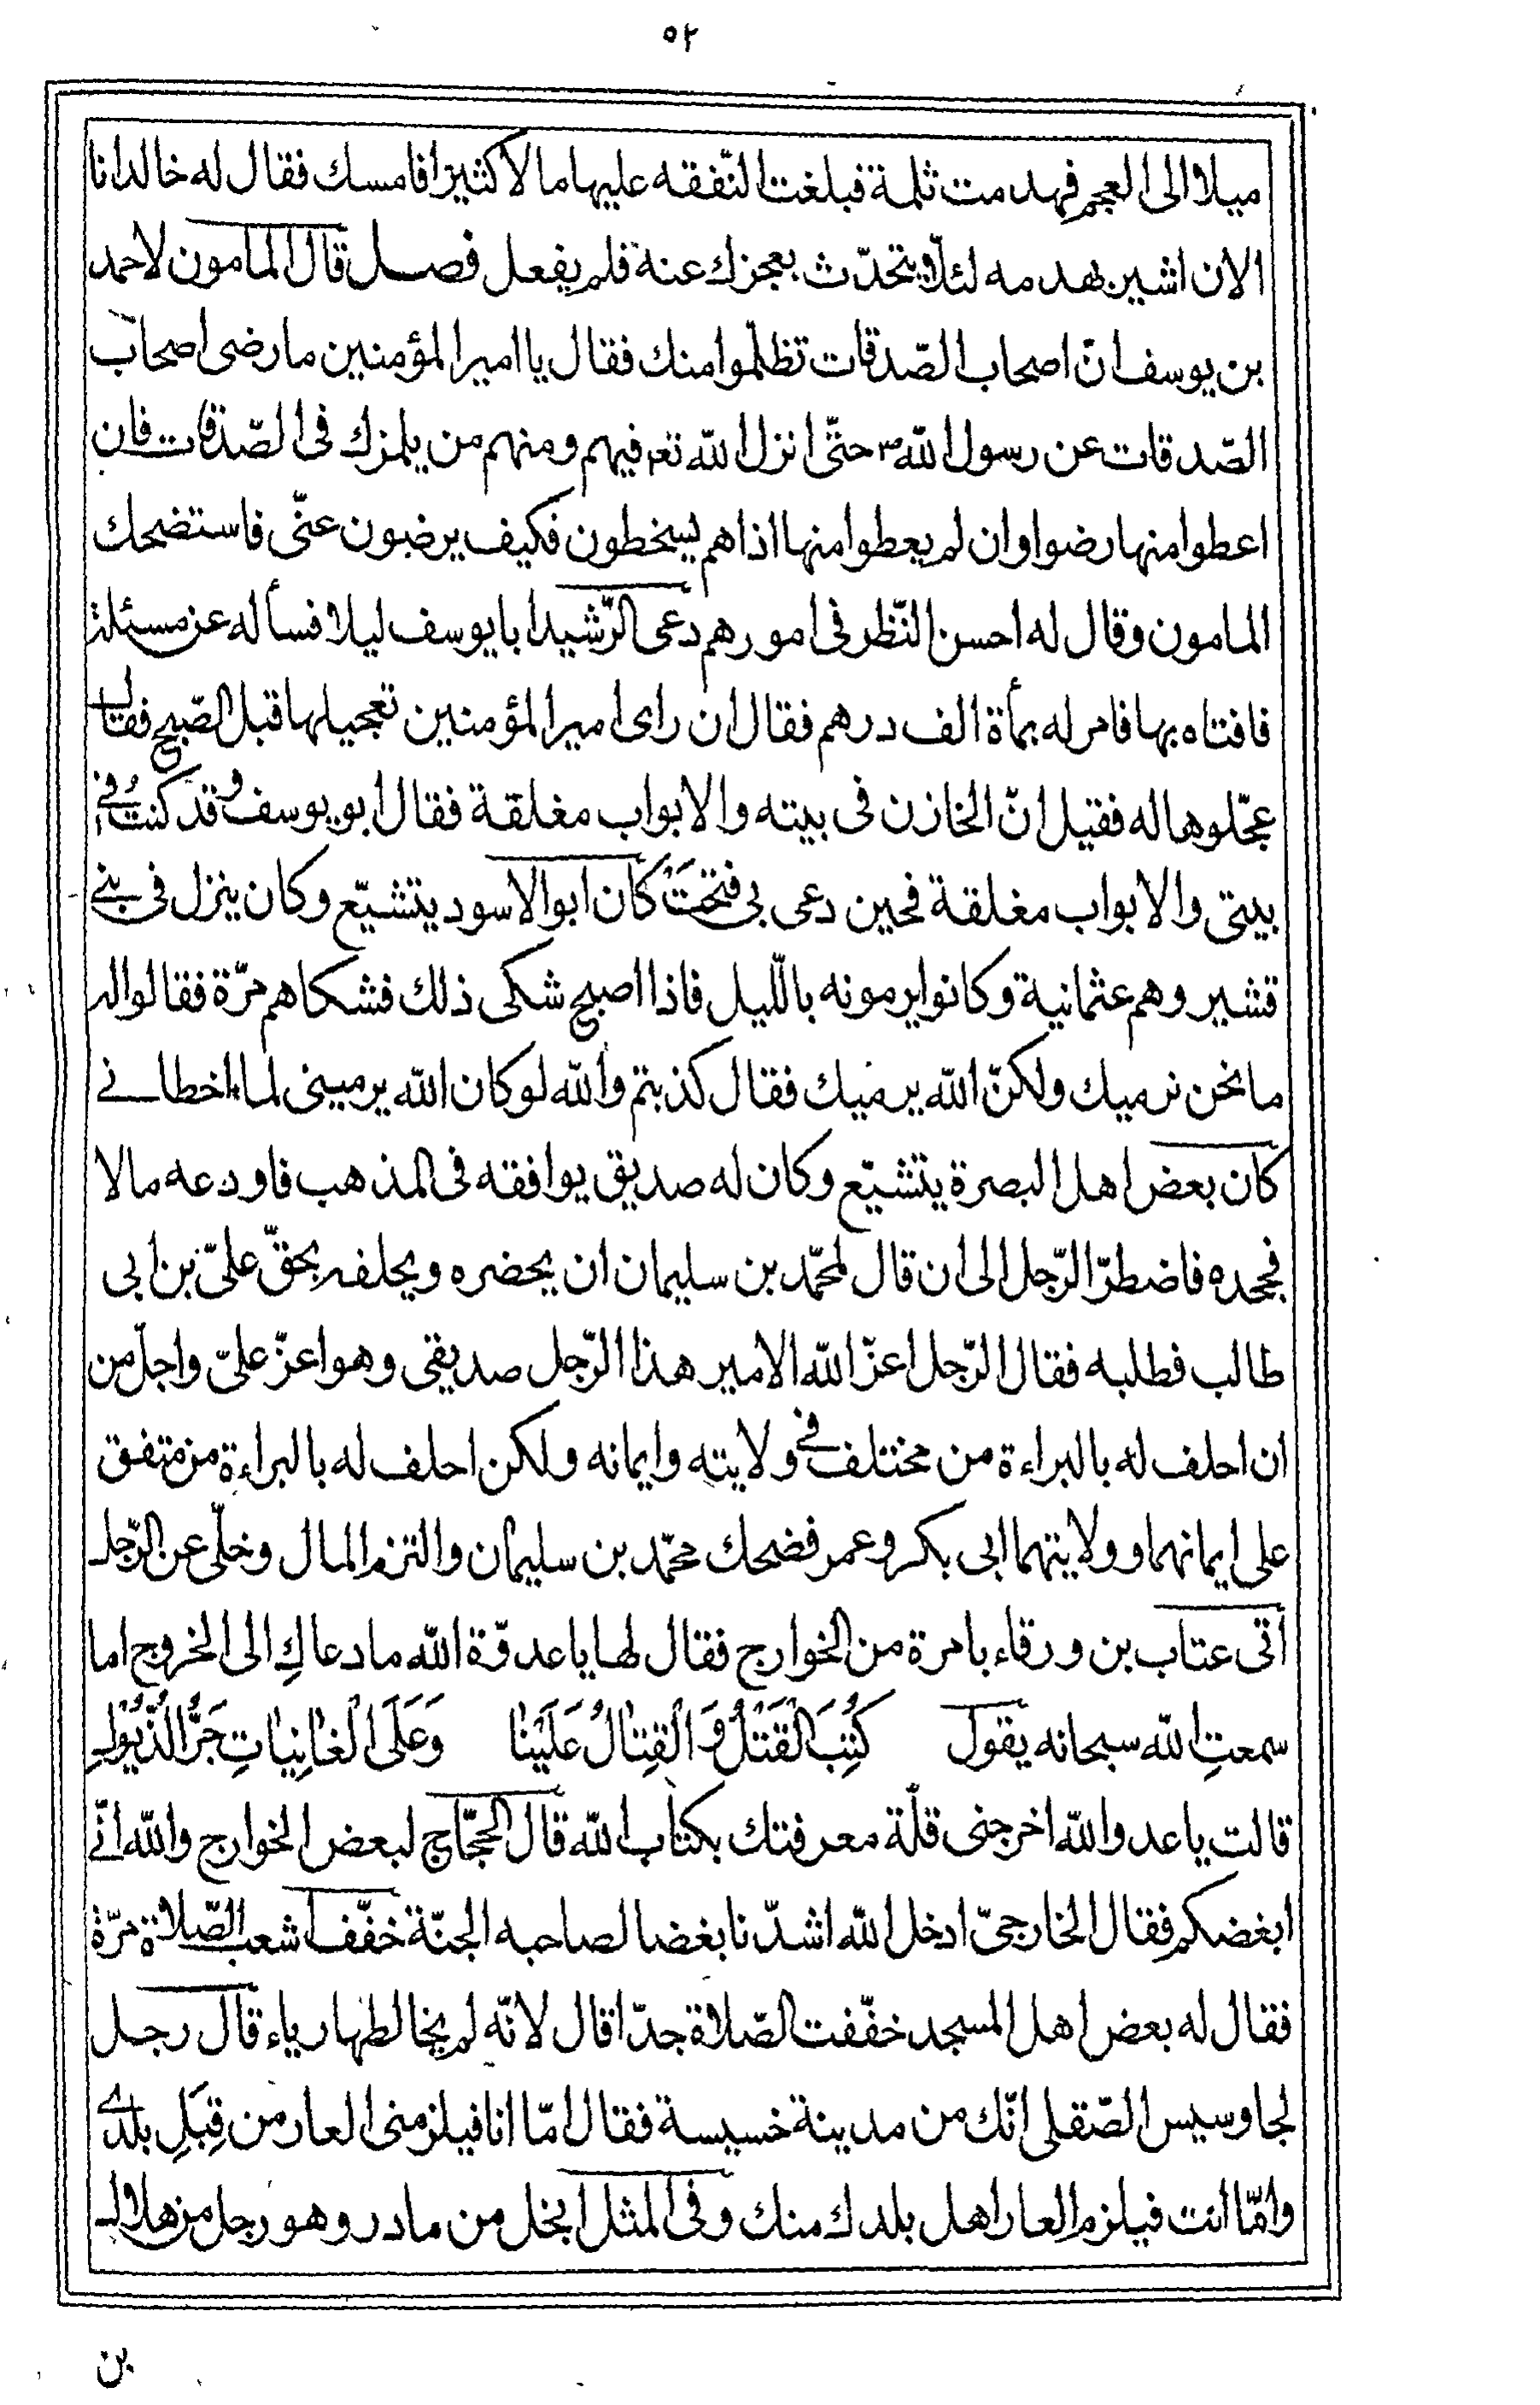 ٥٢
ميلا الى العجم فهدمت ثلمة فبلغت النّفقه عليها مالا كثيرا فامسك فقال له خالد انا
الان اشير بهدمه لئلّا يتحدّث بعجزك عنه فلم يفعل فصل قال المامون لاحمد
بن يوسف انّ اصحاب الصّدقات تظلّموا منك فقال يا امير المؤمنين ما رضى اصحاب
الصّدقات عن رسول اللّه ص حتّى انزل اللّه تعه فيهم ومنهم من يلمزك فى الصّدقات فان
اعطوا منها رضوا وان لم يعطوا منها اذا هم يسخطون فكيف يرضون عنّى فاستضحك
المامون وقال له احسن النّظر فى امورهم دعى الرّشيد ابا يوسف ليلا فسأله عن مسئلة
فافتاه بها فامر له بمأة الف درهم فقال ان راى امير المؤمنين تعجيلها قبل الصّبح فقال
عجّلوها له فقيل انّ الخازن فى بيته والابواب مغلقة فقال ابو يوسف وقد كنتُ فى
بيتى والابواب مغلقة فحين دعى بى فتحَتْ كان ابو الاسود يتشيّع وكان ينزل فى بنى
قشير وهم عثمانية وكانوا يرمونه باللّيل فاذا اصبح شكى ذلك فشكاهم مرّة فقالوا له
ما نحن نرميك ولكنّ اللّه يرميك فقال كذبتم واللّه لو كان اللّه يرمينى لما اخطانى
كان بعض اهل البصرة يتشيّع وكان له صديق يوافقه فى المذهب فاودعه مالا
فجحده فاضطرّ الرّجل الى ان قال لمحمّد بن سليمان ان يحضره ويحلفه بحقّ علىّ بن ابى
طالب فطلبه فقال الرّجل اعزّ اللّه الامير هذا الرّجل صديقى وهو اعزّ علىّ واجلّ من
ان احلف له بالبراءة من مختلف فى ولايته وايمانه ولكن احلف له بالبراءة من متفق
على ايمانهما وولايتهما ابى بكر وعمر فضحك محمّد بن سليمان والتزم المال وخلّى عن الرّجل
اتى عتاب بن ورقاء بامرة من الخوارج فقال لها يا عدوّة اللّه ما دعاكِ الى الخروج اما
سمعتِ اللّه سبحانه يقول كُتِبَ الْقَتْلُ وَ الْقِتالُ عَلَيْنا وَعَلَى الْغانِياتِ جَرُّ الذُّيُولِ
قالت يا عدو اللّه اخرجنى قلّة معرفتك بكتاب اللّه قال الحجّاج لبعض الخوارج واللّه انّى
ابغضكم فقال الخارجىّ ادخل اللّه اشدّنا بغضا لصاحبه الجنّة خفّف اشعب الصّلاة مرّة
فقال له بعض اهل المسجد خفّفت الصّلاة جدّا قال لانّه لم يخالطها رياء قال رجل
لجاوسيس الصّقلى انّك من مدينة خسيسة فقال امّا انا فيلزمنى العار من قِبَلِ بلدى
وامّا انت فيلزم العار اهل بلدك منك وفى المثل ابخل من مادر وهو رجل من هلال
بن